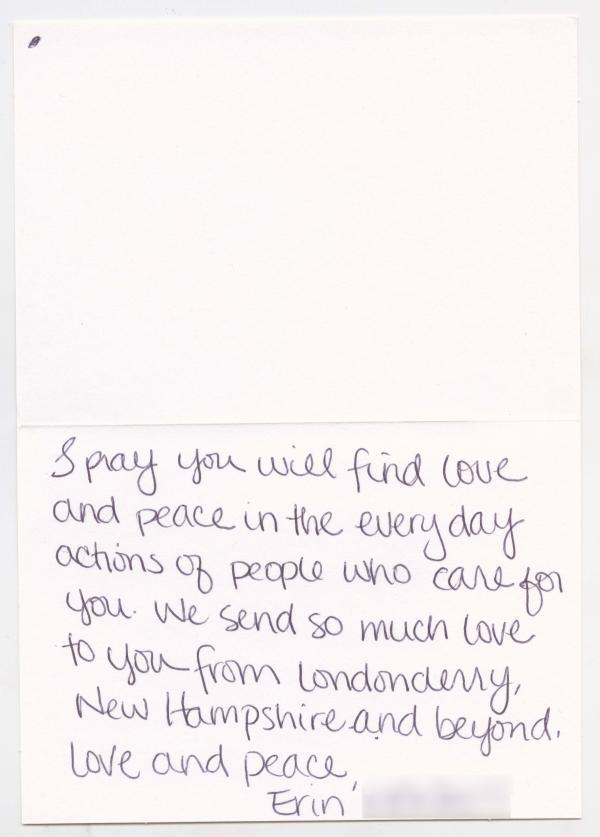 I pray you will find love
and peace in the every day
actions of people who care for
you. We send so much love
to you from Londonderry,
New Hampshire and beyond.
Love and peace,
Erin